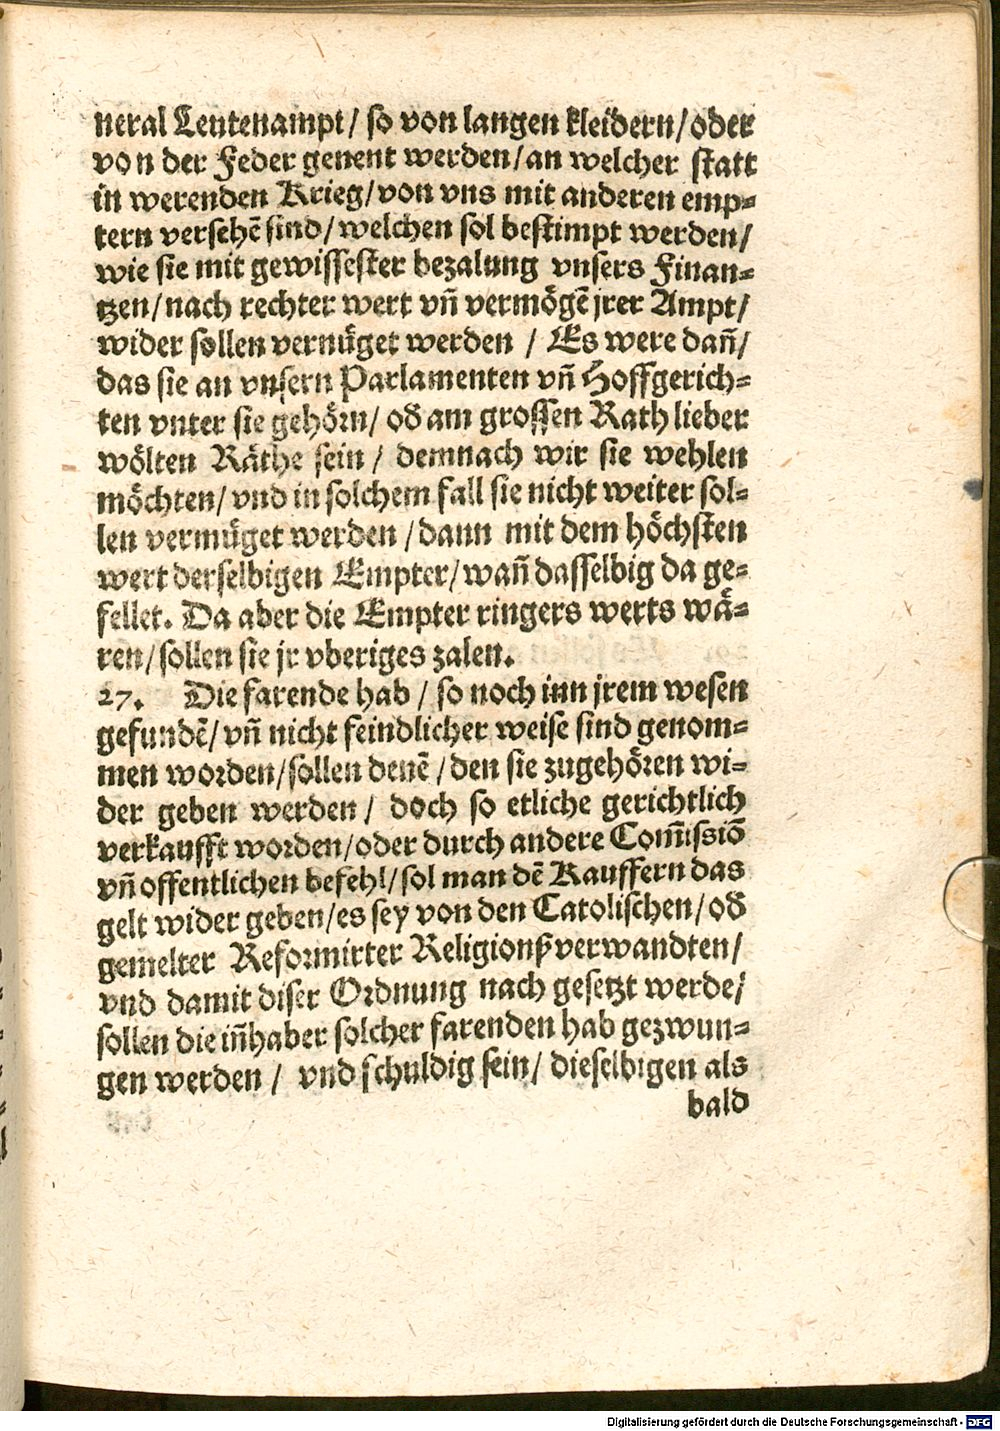 neral Leutenampt/ so von langen kleidern/oder
von der Feder genent werden/an welcher statt
in werenden Krieg/von vns mit anderen emp⸗
tern versehē sind/welchen sol bestimpt werden/
wie sie mit gewissester bezalung vnsers Finan⸗
tzen/nach rechter wert vn̄ vermögē jrer Ampt/
wider sollen vernüget werden / Es were dan̄/
das sie an vnsern Parlamenten vn̄ Hoffgerich⸗
ten vnter sie gehörn/ od̄ am grossen Rath lieber
wölten Räthe sein / demnach wir sie wehlen
möchten/ vnd in solchem fall sie nicht weiter sol⸗
len vermüget werden /dann mit dem höchsten
wert derselbigen Empter/wan̄ dasselbig da ge⸗
fellet. Da aber die Empter ringers werts wä⸗
ren/sollen sie jr vberiges zalen.
27. Die farende hab / so noch inn jrem wesen
gefundē/ vn̄ nicht feindlicher weise sind genom⸗
men worden/sollen denē /den sie zugehören wi⸗
der geben werden / doch so etliche gerichtlich
verkaufft worden/oder durch andere Com̄issiō
vn̄ offentlichen befehl/sol man dē Kauffern das
gelt wider geben/es sey von den Catolischen/od̄
gemelter Reformirter Religionß verwandten/
vnd damit diser Ordnung nach gesetzt werde/
sollen die in̄haber solcher farenden hab gezwun⸗
gen werden / vnd schuldig sein/ dieselbigen als
bald
Digitalisierung gefördert durch die Deutsche Forschungsgemeinschaft - DFG